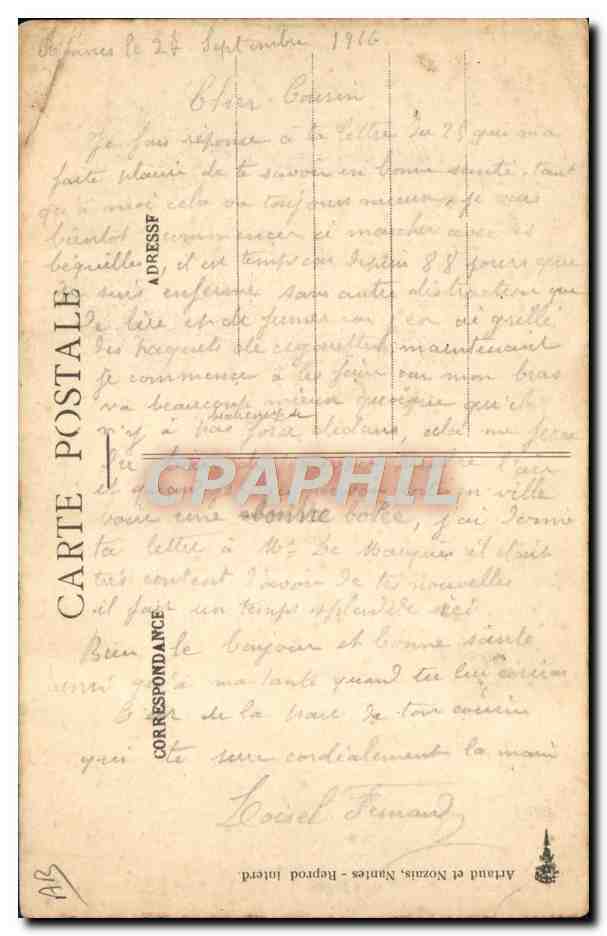 le 27 Septembre 1916
Cher Cousin
Je fais réponse à ta lettre du 25 que ma
faite plaisir de te savoir en bonne santé, tant
qu'à moi cela va toujours mieux, je vais
bientot commencer à marcher avec des
béquilles, il est temps car depuis 88 jours que
je suis enfermé sans autre distraction que
de lire et de fumer car j'en ai grillé
des paquets de cigarettes, maintenant
je commence à les faire car mon bras
va beaucoup mieux quoique qu'il
n'y à pas force dedans, cela me fera
du bien prendre l'air
et quand en ville
boire une bonne bolée, j'ai donné
ta lettre à Mr De il était
très content d'avoir de tes nouvelles
il fait un temps splendide ici
Bien le bonjour et bonne santé
ainsi qu'à ma tante quand tu lui
de la part de ton cousin
qui te serre cordialement la main
Loisel Fernand
CARTE POSTALE
ADRESSE
CORRESPONDANCE
CPAPHIL
Artaud et Nozais, Nantes - Reprod interd.
AB